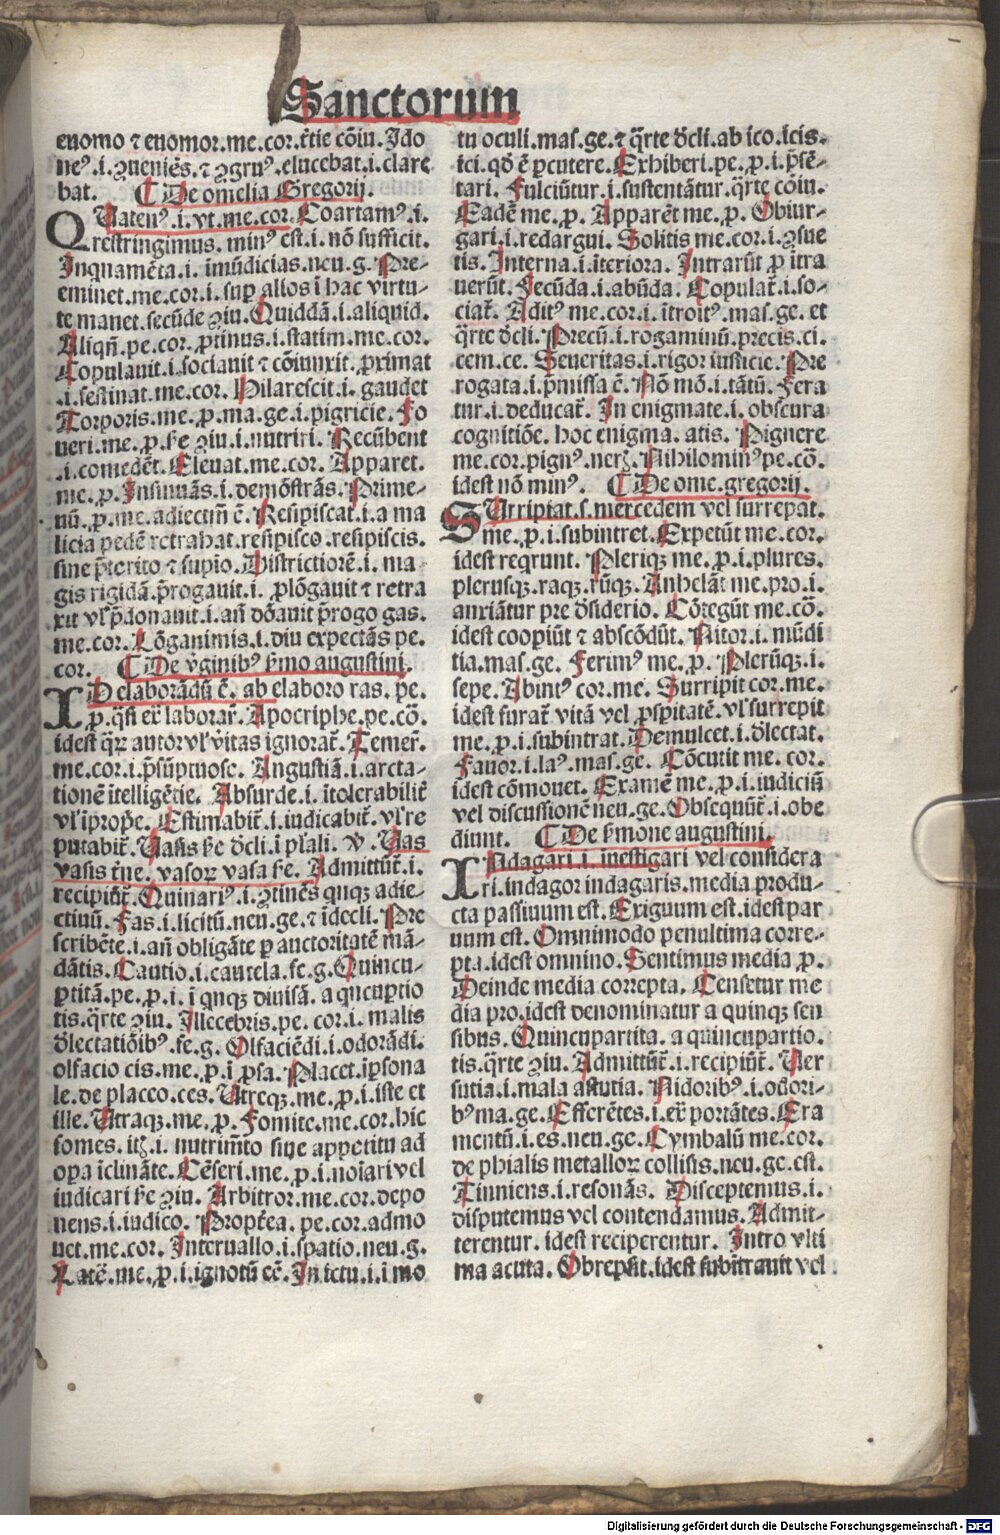 Sanctorum
euomo ⁊ euomor.me.cor.t̄tie cōiu. Ido
neꝰ.i.ꝯueniēs.⁊ ꝯgruꝰ.elucebat.i.clare
bat. ¶ De omelia Gregorij.
QUatenꝰ.i.vt.me.cor. Coartamꝰ.i.
restringimus. minꝰ est.i. nō sufficit.
Inquamēta.i. imūdicias.neu.g. Pre-
eminet.me.cor.i. sup alios ī hac virtu-
te manet.secūde ꝯiu. Quiddā.i.aliquid.
Aliqn̄.pe.cor. ꝓtinus.i.statim.me.cor.
Copulauit.i.sociauit ⁊ cōiunxit. ꝓximat
.i.festinat.me.cor. Hilarescit.i. gaudet
Torporis.me.ꝓ.ma.ge.i.pigricie. Fo
ueri.me.ꝓ.f̄e ꝯiu.i.nutriri. Recūbent
.i.comedēt. Eleuat.me.cor. Apparet.
me.ꝓ. Insinuās.i.demōstrās. Prime-
nū.ꝓ.me.adiectiū ē. Resipiscat.i.a ma
licia pedē retrahat.resipisco.resipiscis.
sine p̄terito ⁊ supio. Districtiorē.i. ma-
gis rigidā.p̄rogauit.i. ꝓlōgauit ⁊ retra
xit vl̄ p̄donauit.i.an̄ dōauit p̄rogo gas.
me.cor. Lōganimis.i.diu expectās pe.
cor. ¶ De v̄ginibꝰ s̄mo augustini.
ID elaborādū ē. ab elaboro ras. pe.
ꝓ.q̄si ex̄ laborar̄. Apocriphe.pe.cō.
idest q̄ꝝ autor vl̄ v̄itas ignorat̄. Temer̄.
me.cor.i.p̄sūptuose. Angustiā.i.arcta-
tionē ītelligētie. Absurde.i. ītolerabilit̄
vl̄ īprop̄e. Estimabit̄.i.iudicabit̄. vl̄ re
putabit̄. Vasis f̄e d̄cli.i pl̄ali. v̄. Vas
vasis t̄ne. vasoꝝ vasa f̄e. Admittūt̄.i.
recipiūt̄. Quinariꝰ.i.ꝯtinēs qnqꝫ adie-
ctiuū. Fas.i.licitū.neu.ge.⁊ īdecli. Pre
scribēte.i.an̄ obligāte ꝑ auctoritatē mā-
dātis. Cautio.i.cautela.fe.g. Quincu-
ꝑtitā.pe.ꝓ.i. ī qnqꝫ diuisā. a qncuꝑtio
tis.q̄rte ꝯiu. Illecebris.pe. cor.i. malis
d̄lectatiōibꝰ.fe.g. Olfaciēdi.i.odorādi.
olfacio cis.me.ꝓ.i ꝓsa. Placet.ip̄sona
le.de placeo.ces. Utreqꝫ.me.ꝓ.i.iste et
ille. Utraqꝫ.me.ꝓ. Fomite.me.cor.hic
fomes. itꝫ.i. nutrim̄to siue appetitu ad
opa īclināte. Cēseri.me.ꝓ.i.noīari vel
iudicari f̄e ꝯiu. Arbitror.me.cor.depo
nens.i.iudico. Propt̄ea.pe.cor.admo
uet.me.cor. Interuallo.i.spatio.neu.g.
Latē.me.ꝓ.i.ignotū eē. In ictu.i.i mo
tu oculi.mas.ge.⁊ q̄rte d̄cli.ab ico.icis.
ici.qd̄ ē ꝑcutere. Exhiberi.pe.ꝓ.i.p̄sē-
tari. Fulciūtur.i.sustentātur.q̄rte cōiu.
Eadē me.ꝓ. Apparēt me.ꝓ. Obiur-
gari.i.redargui. Solitis me.cor.i.ꝯsue
tis. Interna.i.īteriora. Intrarūt ꝓ ītra
uerūt. Fecūda.i.abūda. Copulat̄.i.so-
ciat̄. Aditꝰ me.cor.i.ītroitꝰ.mas.ge.et
q̄rte d̄cli. Precū.i.rogaminū.precis.ci.
cem.ce. Seueritas.i.rigor iusticie. Pre
rogata.i.p̄missa ē. Nō mō.i.tātū. Fera
tur.i.deducat̄. In enigmate.i. obscura
cognitiōe. hoc enigma. atis. Pignere
me.cor.pignꝰ.nerꝫ. Nihilominꝰ pe.cō.
idest nō minꝰ. ¶ De ome.gregorij.
SUrripiat.s.mercedem vel surrepat.
me.ꝓ.i.subintret. Expetūt me.cor.
idest reqrunt. Pleriqꝫ me.ꝓ.i.plures.
plerusqꝫ.raqꝫ.rūqꝫ. Anhelāt me.pro.i.
anxiātur pre d̄siderio. Cōtegūt me.cō.
idest coopiūt ⁊ abscōdūt. Nitor.i. mūdi
tia.mas.ge. Ferimꝰ me.ꝓ. Plerūqꝫ.i.
sepe. Abintꝰ cor.me. Surripit cor.me.
idest furat̄ vitā vel ꝓspitatē. vl̄ surrepit
me.ꝓ.i.subintrat. Demulcet.i.d̄lectat.
Fauor.i.laꝰ.mas.ge. Cōcutit me. cor.
idest cōmouet. Examē me.ꝓ.i.iudiciū
vel discussionē neu.ge. Obsequūt̄.i.obe
diunt. ¶ De s̄mone augustini.
INdagari.i. inestigari vel considera
ri.indagor indagaris.media produ-
cta passiuum est. Exiguum est.idest par
uum est. Omnimodo penultima corre-
pta.idest omnino. Sentimus media ꝓ.
Deinde media correpta. Censetur me
dia pro.idest denominatur a quinqꝫ sen
sibus. Quincupartita. a quincupartio.
tis.q̄rte ꝯiu. Admittūt̄.i.recipiūt̄. Ver
sutia.i.mala astutia. Nidoribꝰ.i.odori-
bꝰ ma.ge. Efferētes.i.ex̄ portātes. Era
mentū.i.es.neu.ge. Cymbalū me.cor.
de phialis metalloꝝ collisis.neu.ge.est.
Tinniens.i.resonās. Disceptemus.i.
disputemus vel contendamus. Admit-
terentur. idest reciperentur. Intro vlti
ma acuta. Obrepsit.idest subītrauit vel
Digitalisierung gefördert durch die Deutsche Forschungsgemeinschaft - DFG